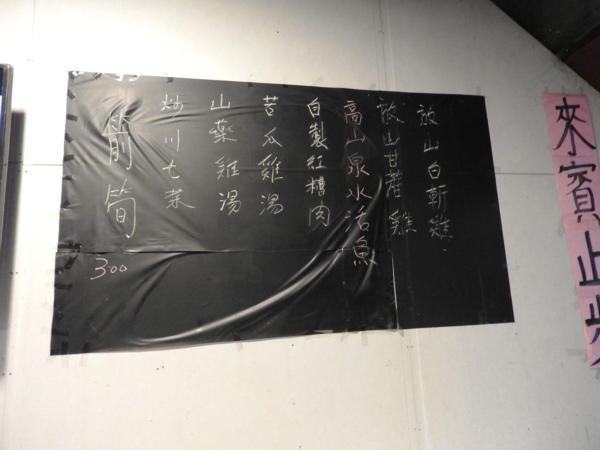 來賓止步
放山白斬雞
放山甘蔗雞
高山泉水活魚
自製紅糟肉
苦瓜雞湯
山藥雞湯
炒川七菜
箭筍
300